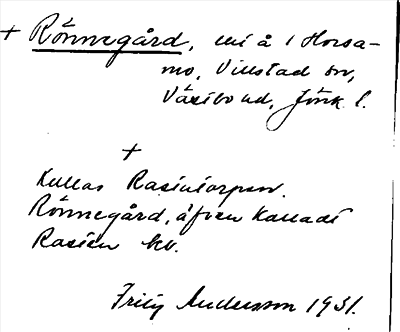 + Rönnegård, uti å i Horsa-
mo, Villstad sn,
Västbo hd, Jönk. l.
+
Kallas Rasintorpen.
Rönnegård, äfven kalladt
Rasién kv.
Fritz Andersson 1931.